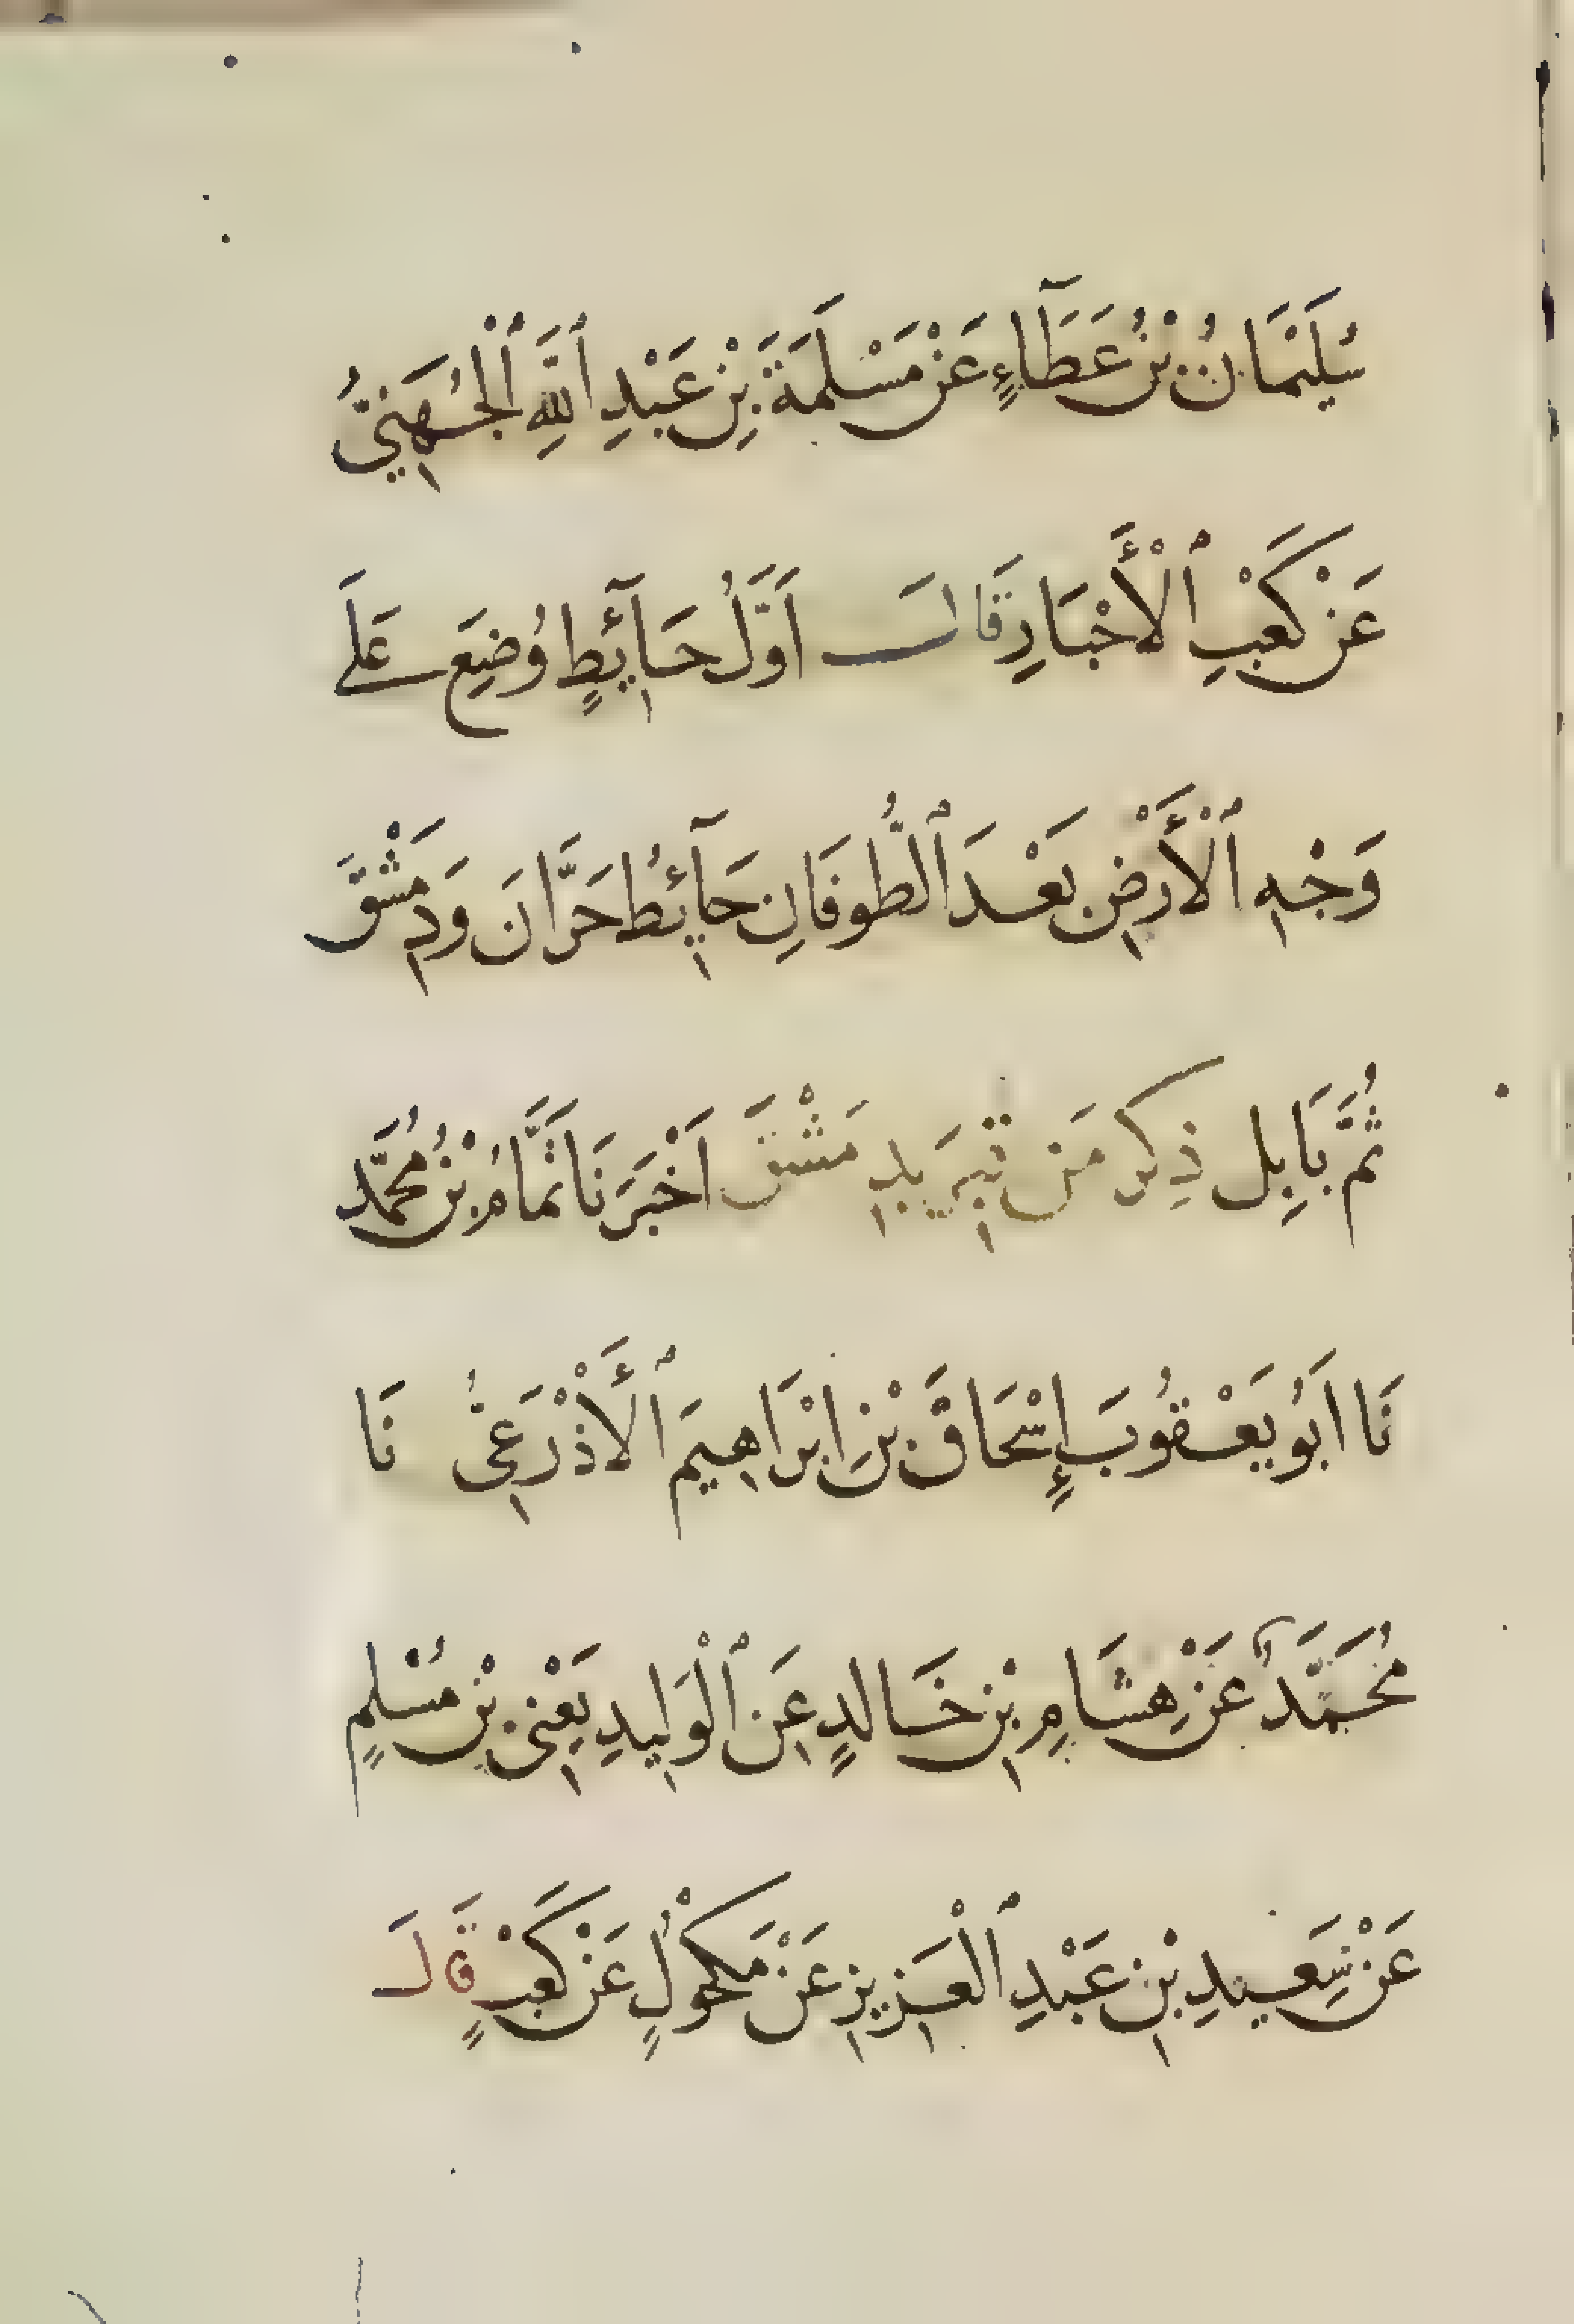 سُلَيْمَانُ بْنُ عَطَآءٍ عَنْ مَسْلَمَةَ بْنِ عَبْدِ ٱللَّهِ ٱلْجُهَنِيُّ
عَنْ كَعْبِ ٱلْأَحْبَارِ قَالَ أَوَّلُ حَآئِطٍ وُضِعَ عَلَى
وَجْهِ ٱلْأَرْضِ بَعْدَ ٱلطُّوفَانِ حَآئِطُ حَرَّانَ وَدِمَشْقَ
ثُمَّ بَابِل ذِكر مَن قبره بِدِمَشْقَ اَخْبَرَنَا تَمَّامُ بْنُ مُحَمَّد
نَا اَبُو يَعْقُوبَ إِسْحَاقَ بْنِ اِبْرَاهِيمَ ٱلْأَذْرَعِىُّ نَا
مُحَمَّدٌ عَنْ هِشَامِ بْنِ خَالدٍ عَنِ ٱلْوَلِيدِ يَعْنِى بْنِ مُسْلِمٍ
عَنْ سَعِيدِ بْنِ عَبْدِ ٱلْعَزِيزِ عَنْ مَكْحُولٍ عَنْ كَعْبٍ قَالَ